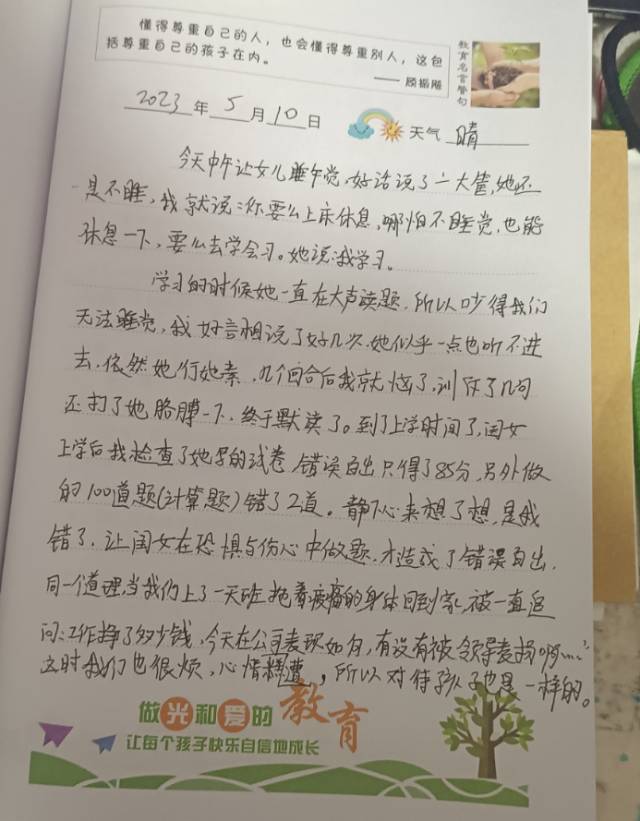 懂得尊重自己的人，也会懂得尊重别人，这包
括尊重自己的孩子在内。
—— 顾振飏
教育名言警句
2023年5月10日
天气 晴
今天中午让女儿睡午觉，好话说了一大筐，她还
是不睡，我就说：你要么上床休息，哪怕不睡觉，也能
休息一下，要么去学会习。她说：我学习。
学习的时候她一直在大声读题，所以吵得我们
无法睡觉，我好言相说了好几次，她似乎一点也听不进
去，依然她行她素，几个回合后我就恼了，训斥了几句
还打了她胳膊一下，终于默读了。到了上学时间了，闺女
上学后我检查了她写的试卷，错误百出只得了85分，另外做
的100道题(计算题)错了2道。静下心来想了想，是我
错了，让闺女在恐惧与伤心中做题，才造成了错误百出，
同一个道理，当我们上了一天班拖着疲惫的身体回到家，被一直追
问：工作挣了多少钱，今天在公司表现如何，有没有被领导表扬啊……
这时我们也很烦，心情糟糟，所以对待孩子也是一样的。
做光和爱的教育
让每个孩子快乐自信地成长